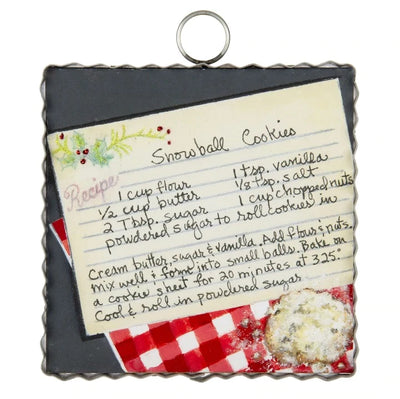 Snowball Cookies
Recipe
1 cup flour 1 tsp. vanilla
1/2 cup butter 1/8 tsp. salt
2 Tbsp. sugar 1 cup chopped nuts
powdered sugar to roll cookies in
Cream butter, sugar & vanilla. Add flour & nuts.
mix well & form into small balls. Bake on
a cookie sheet for 20 minutes at 325°
Cool & roll in powdered sugar.